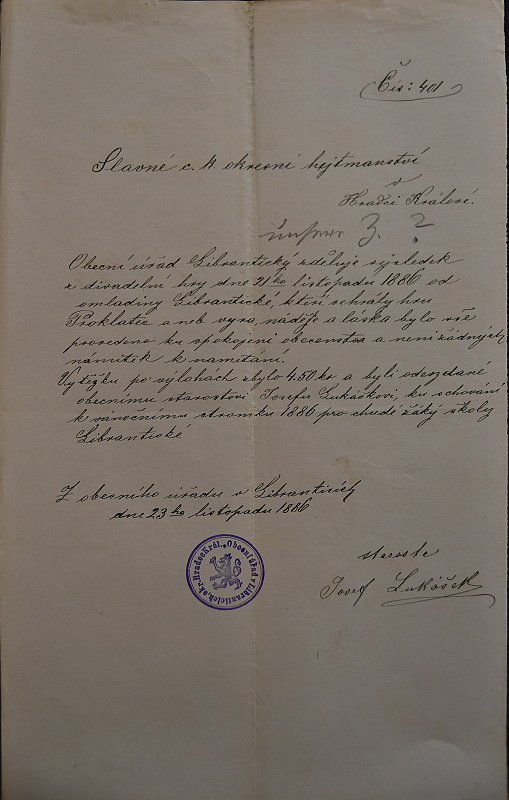 Čís: 401
Slavné c. k. okresní hejtmanství
v
Hradci Králové.
Z. ?
Obecní úřad Librantický zděluje výsledek
z divadelní hry dne 21ho listopadu 1886 od
omladiny Librantické, kteří sehrály hru
Proklatec aneb vyra, náděje a láska bylo vše
provedeno ku spokojení obecenstva a není žádných
námitek k namítání.
Vytěžku po výlohách zbylo 4.50 kr a byli odeszdané
obecnímu starostovi Josefu Lukáškovi, ku schování
k vánočnímu stromku 1886 pro chudé žáký školy
Librantické
Z obecního úřadu v Libranticích
dne 23ho listopadu 1886
starosta
Josef Lukášek
Obecní úřad v Libranticích, okr. Hradec Král.